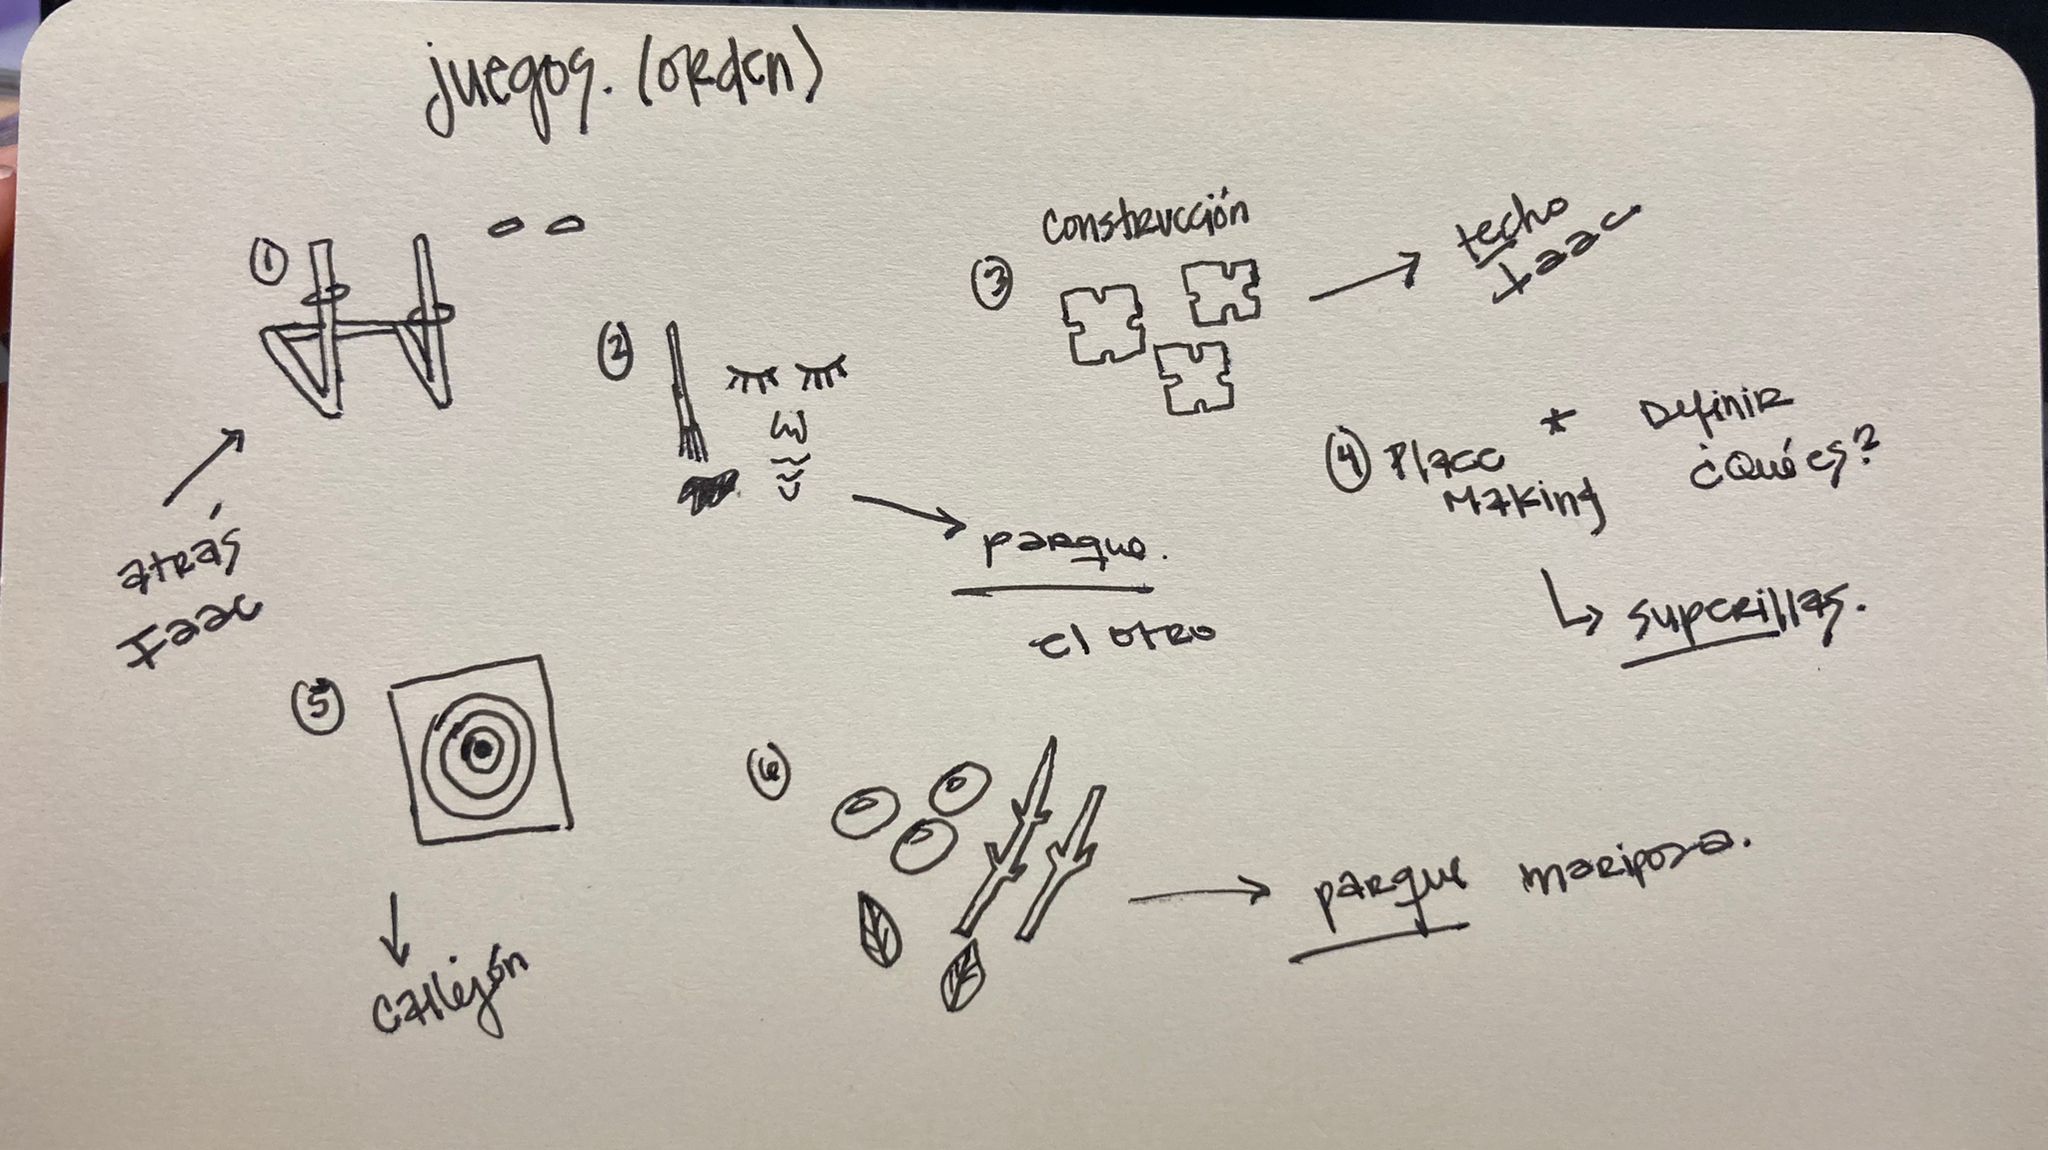 juegos. (orden)
①
atrás
Iaac
②
parque.
el otro
construcción
③
techo
Iaac
④ Place
Making
* Definir
¿Qué es?
superillas.
⑤
callejón
⑥
parque mariposa.